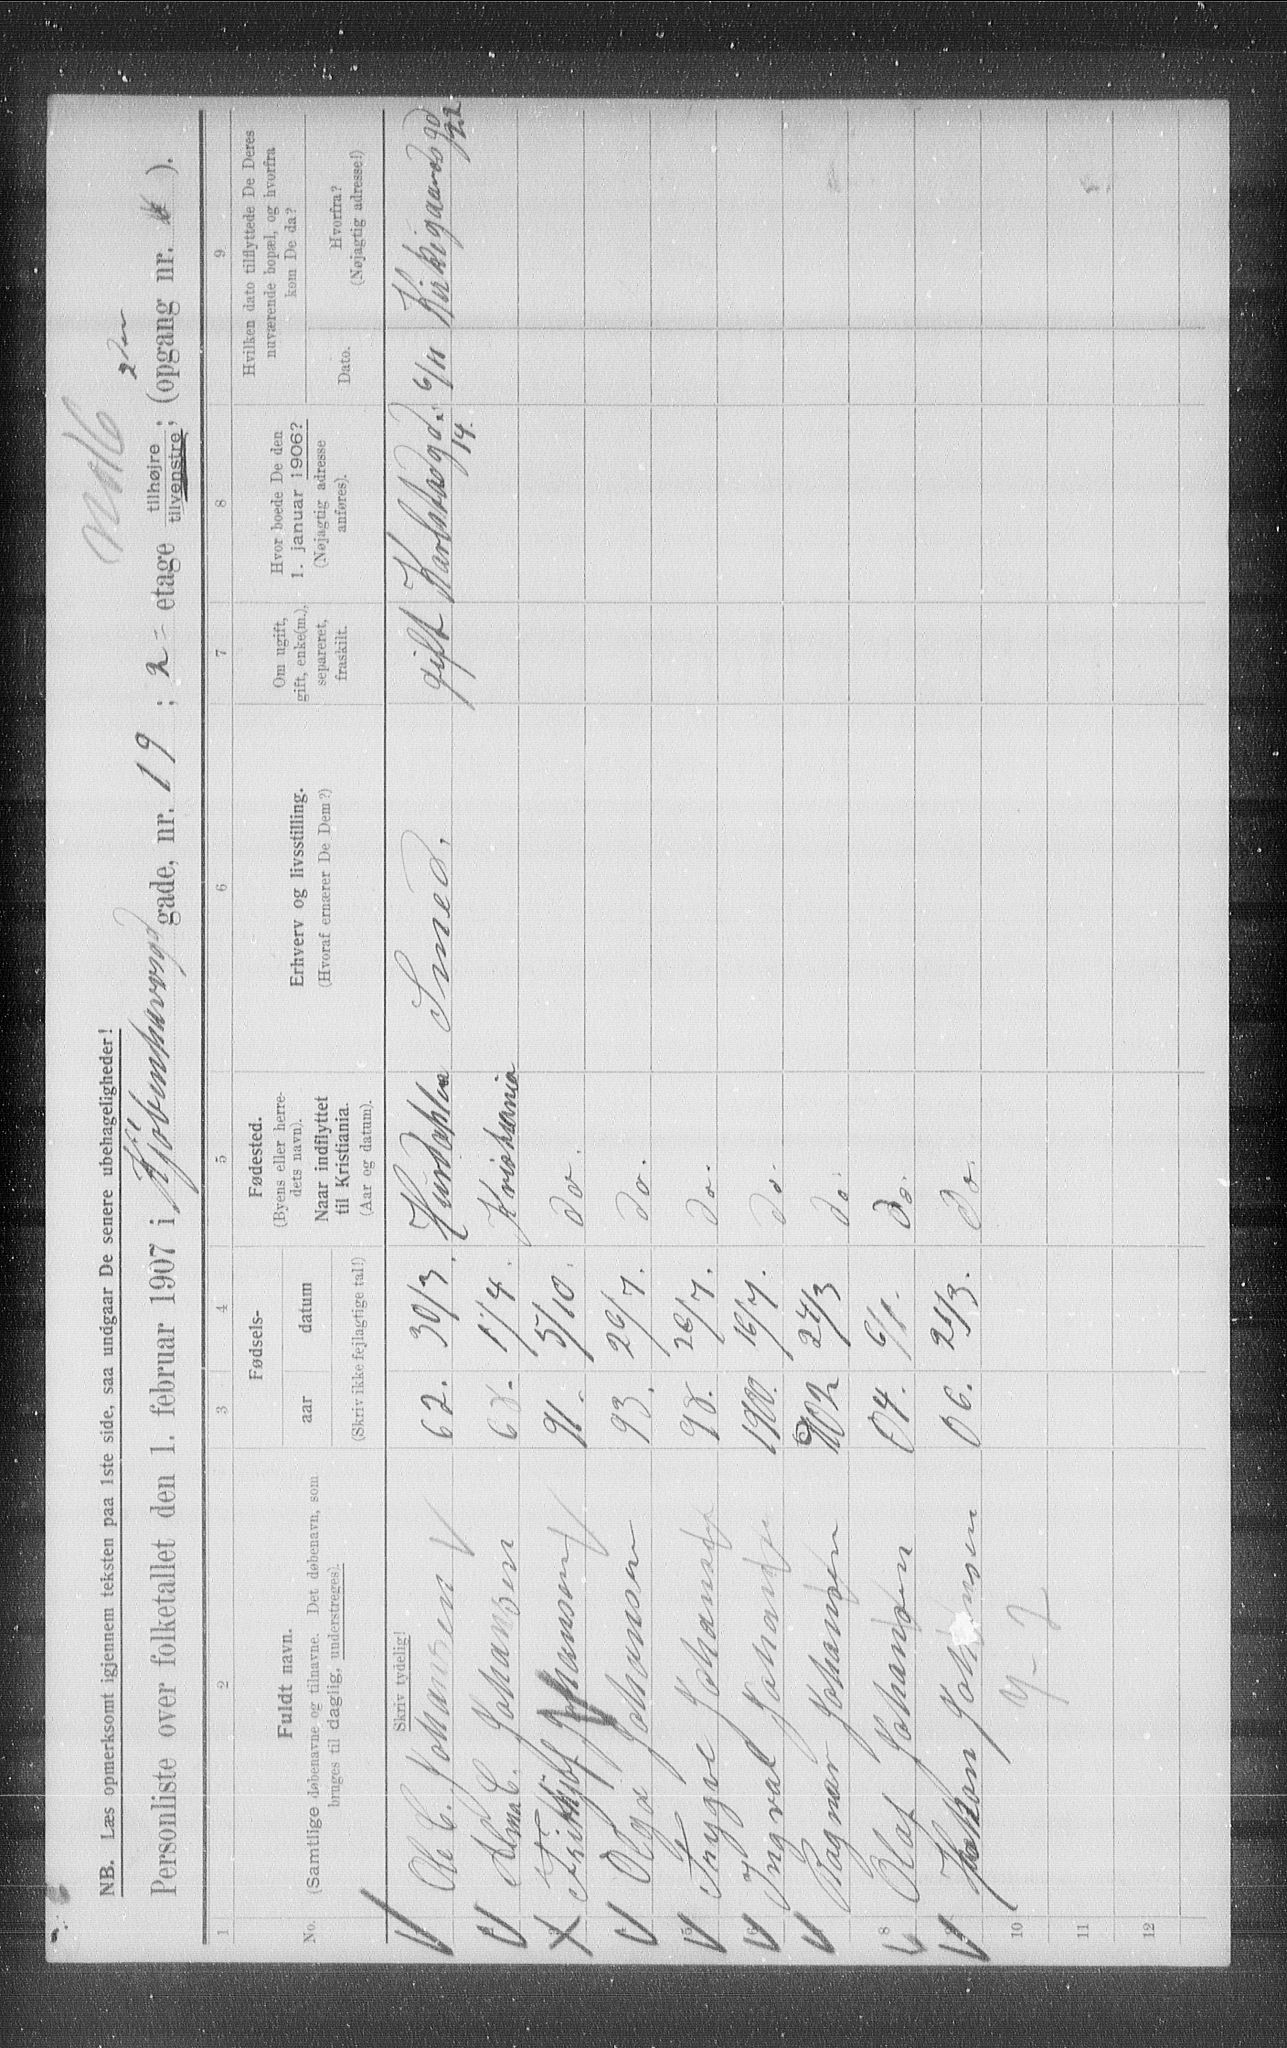 NB. Læs opmerksomt igjennem teksten paa 1ste side, saa undgaar De senere ubehageligheder!
Personliste over folketallet den 1. februar 1907 i Kjøbenhavnsgd gade, nr. 19; 2 etage tilhøjre tilvenstre; (opgang nr. ).
1 2 3 4 5 6 7 8 9
No.
Fuldt navn.
(Samtlige døbenavne og tilnavne. Det døbenavn, som
bruges til daglig, understreges).
Fødsels-
aar datum
(Skriv ikke fejlagtige tal!)
Fødested.
(Byens eller herre-
dets navn).
Naar indflyttet
til Kristiania.
(Aar og datum).
Erhverv og livsstilling.
(Hvoraf ernærer De Dem?)
Om ugift,
gift, enke(m.),
separeret,
fraskilt.
Hvor boede De den
1. januar 1906?
(Nøjagtig adresse
anføres).
Hvilken dato tilflyttede De Deres
nuværende bopæl, og hvorfra
kom De da?
Dato.
Hvorfra?
(Nøjagtig adresse!)
Skriv tydelig!
Ole C. Johansen 62. 30/3. Smed. gift Karlstadgd. 14. 6/11 Kirkigaardsgd 22
Alma C. Johansen 68. 17/4. Kristiania
3 Frithjof Johansen 91. 5/10. do.
Olga Johansen 93. 26/7. do.
5 Trygve Johansen 98. 26/7. do.
6 Ingval Johansen 1900. 16/7. do.
Ragnar Johansen 902 24/3 do.
8 Olaf Johansen 04. 6/1. do.
9 Håkon Johansen 06. 21/3. do.
10
11
12